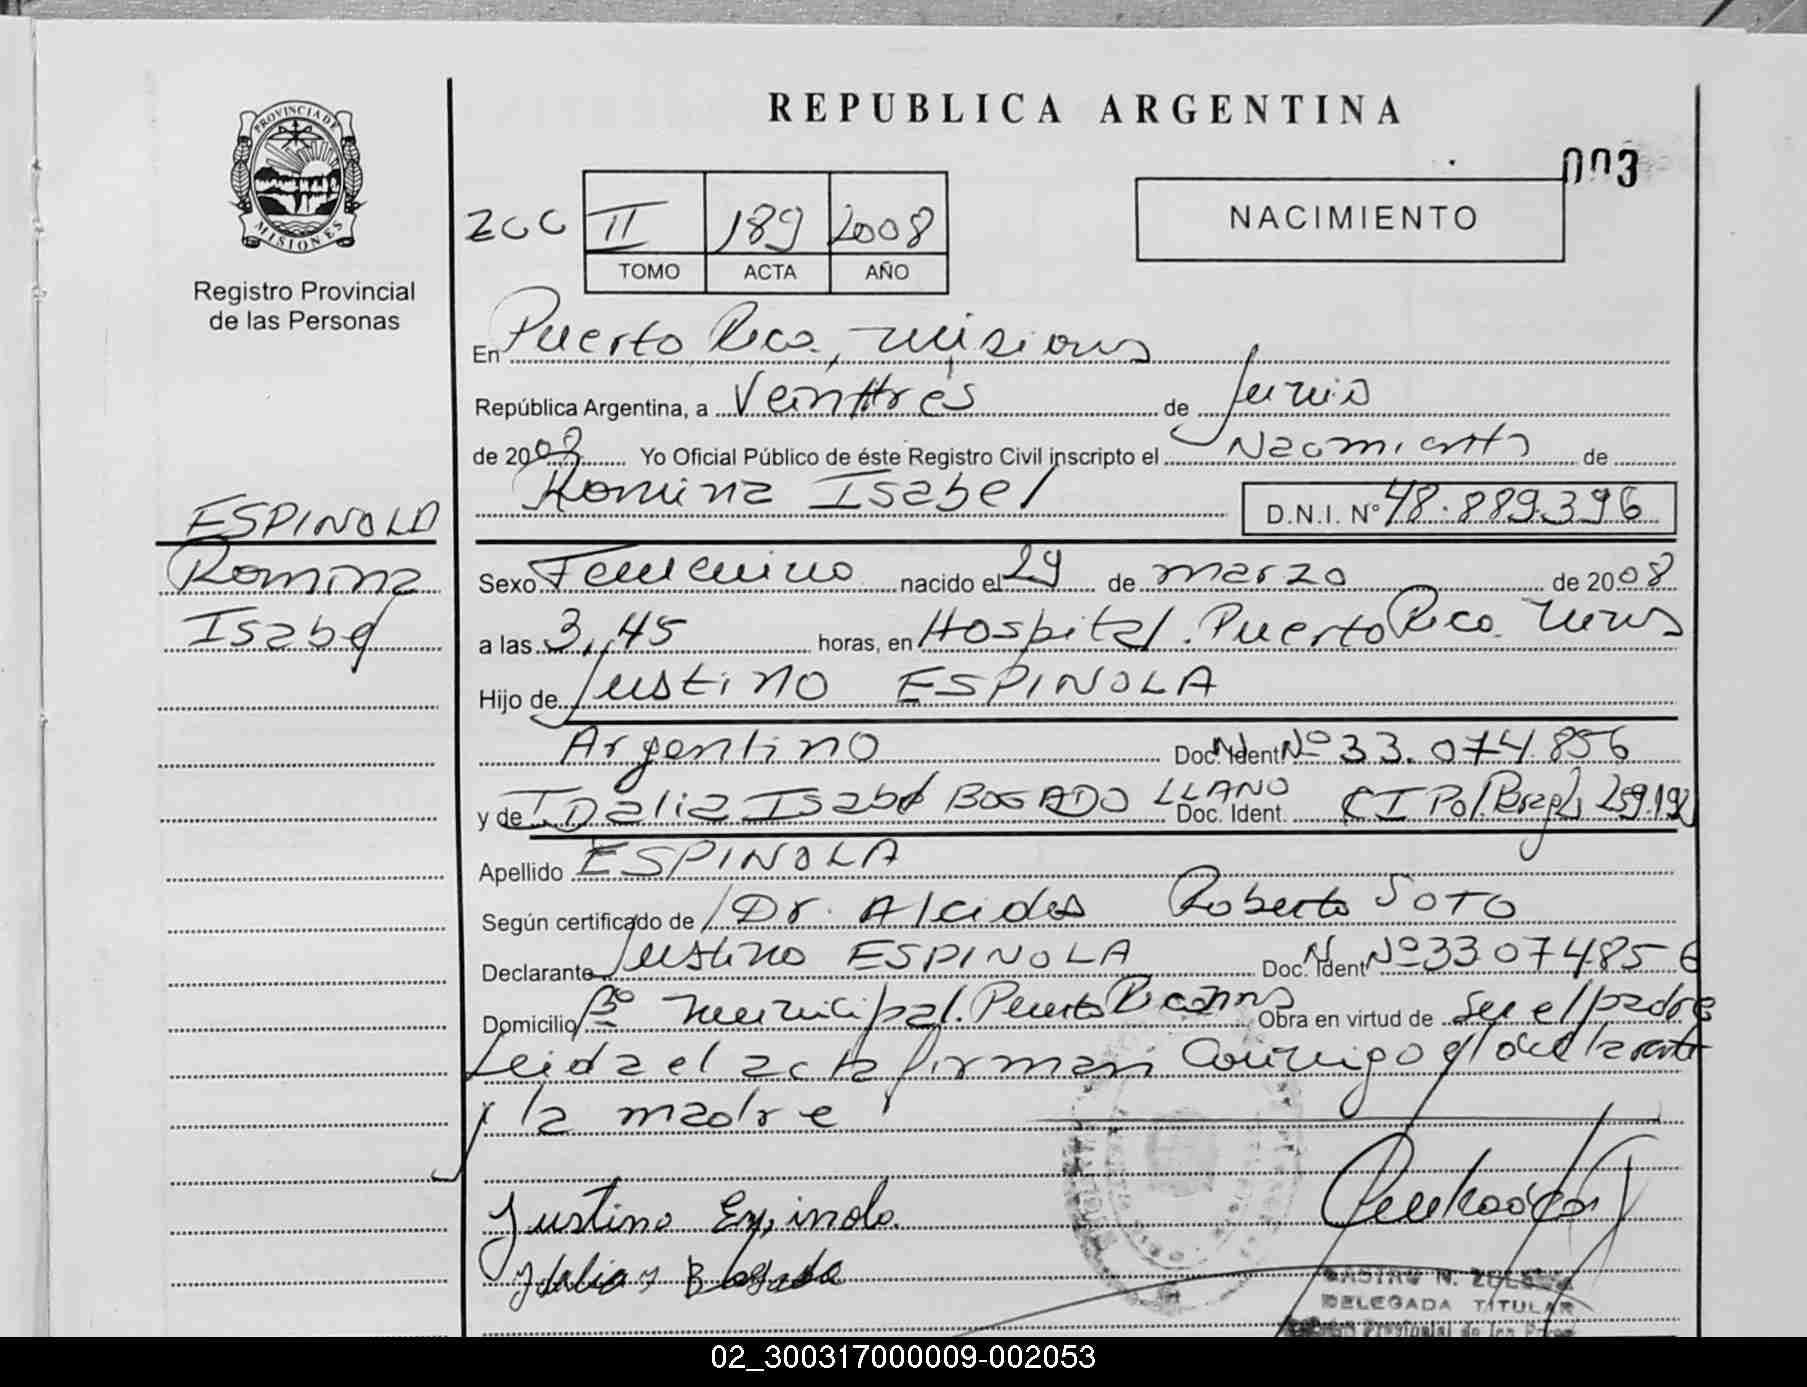 REPUBLICA ARGENTINA
003
PROVINCIA DE
MISIONES
Registro Provincial
de las Personas
II 189 2008
TOMO ACTA AÑO
NACIMIENTO
En Puerto Rico, Misiones
República Argentina, a Veintitrés de Junio
de 2008 Yo Oficial Público de éste Registro Civil inscripto el Nacimiento de
Romina Isabel D.N.I. Nº 48.889.396
ESPINOLA
Romina
Isabel
Sexo Femenino nacido el 29 de marzo de 2008
a las 3,45 horas, en Hospital. Puerto Rico. Mnes
Hijo de Justino ESPINOLA
Argentino Doc. Ident Nº 33.074.856
y de IDalia Isabel BOGADO LLANO Doc. Ident. CI Pol. 259.192
Apellido ESPINOLA
Según certificado de Dr. Alcides Roberto SOTO
Declarante Justino ESPINOLA Doc. Ident Nº 33.074.856
Domicilio Bº Municipal. Puerto Rico Mnes Obra en virtud de ser el padre
Leida el acta firman conmigo el declarante
y la madre
Justino Espinola
Idalia Bogado
DELEGADA TITULAR
Provincial de las
02_300317000009-002053